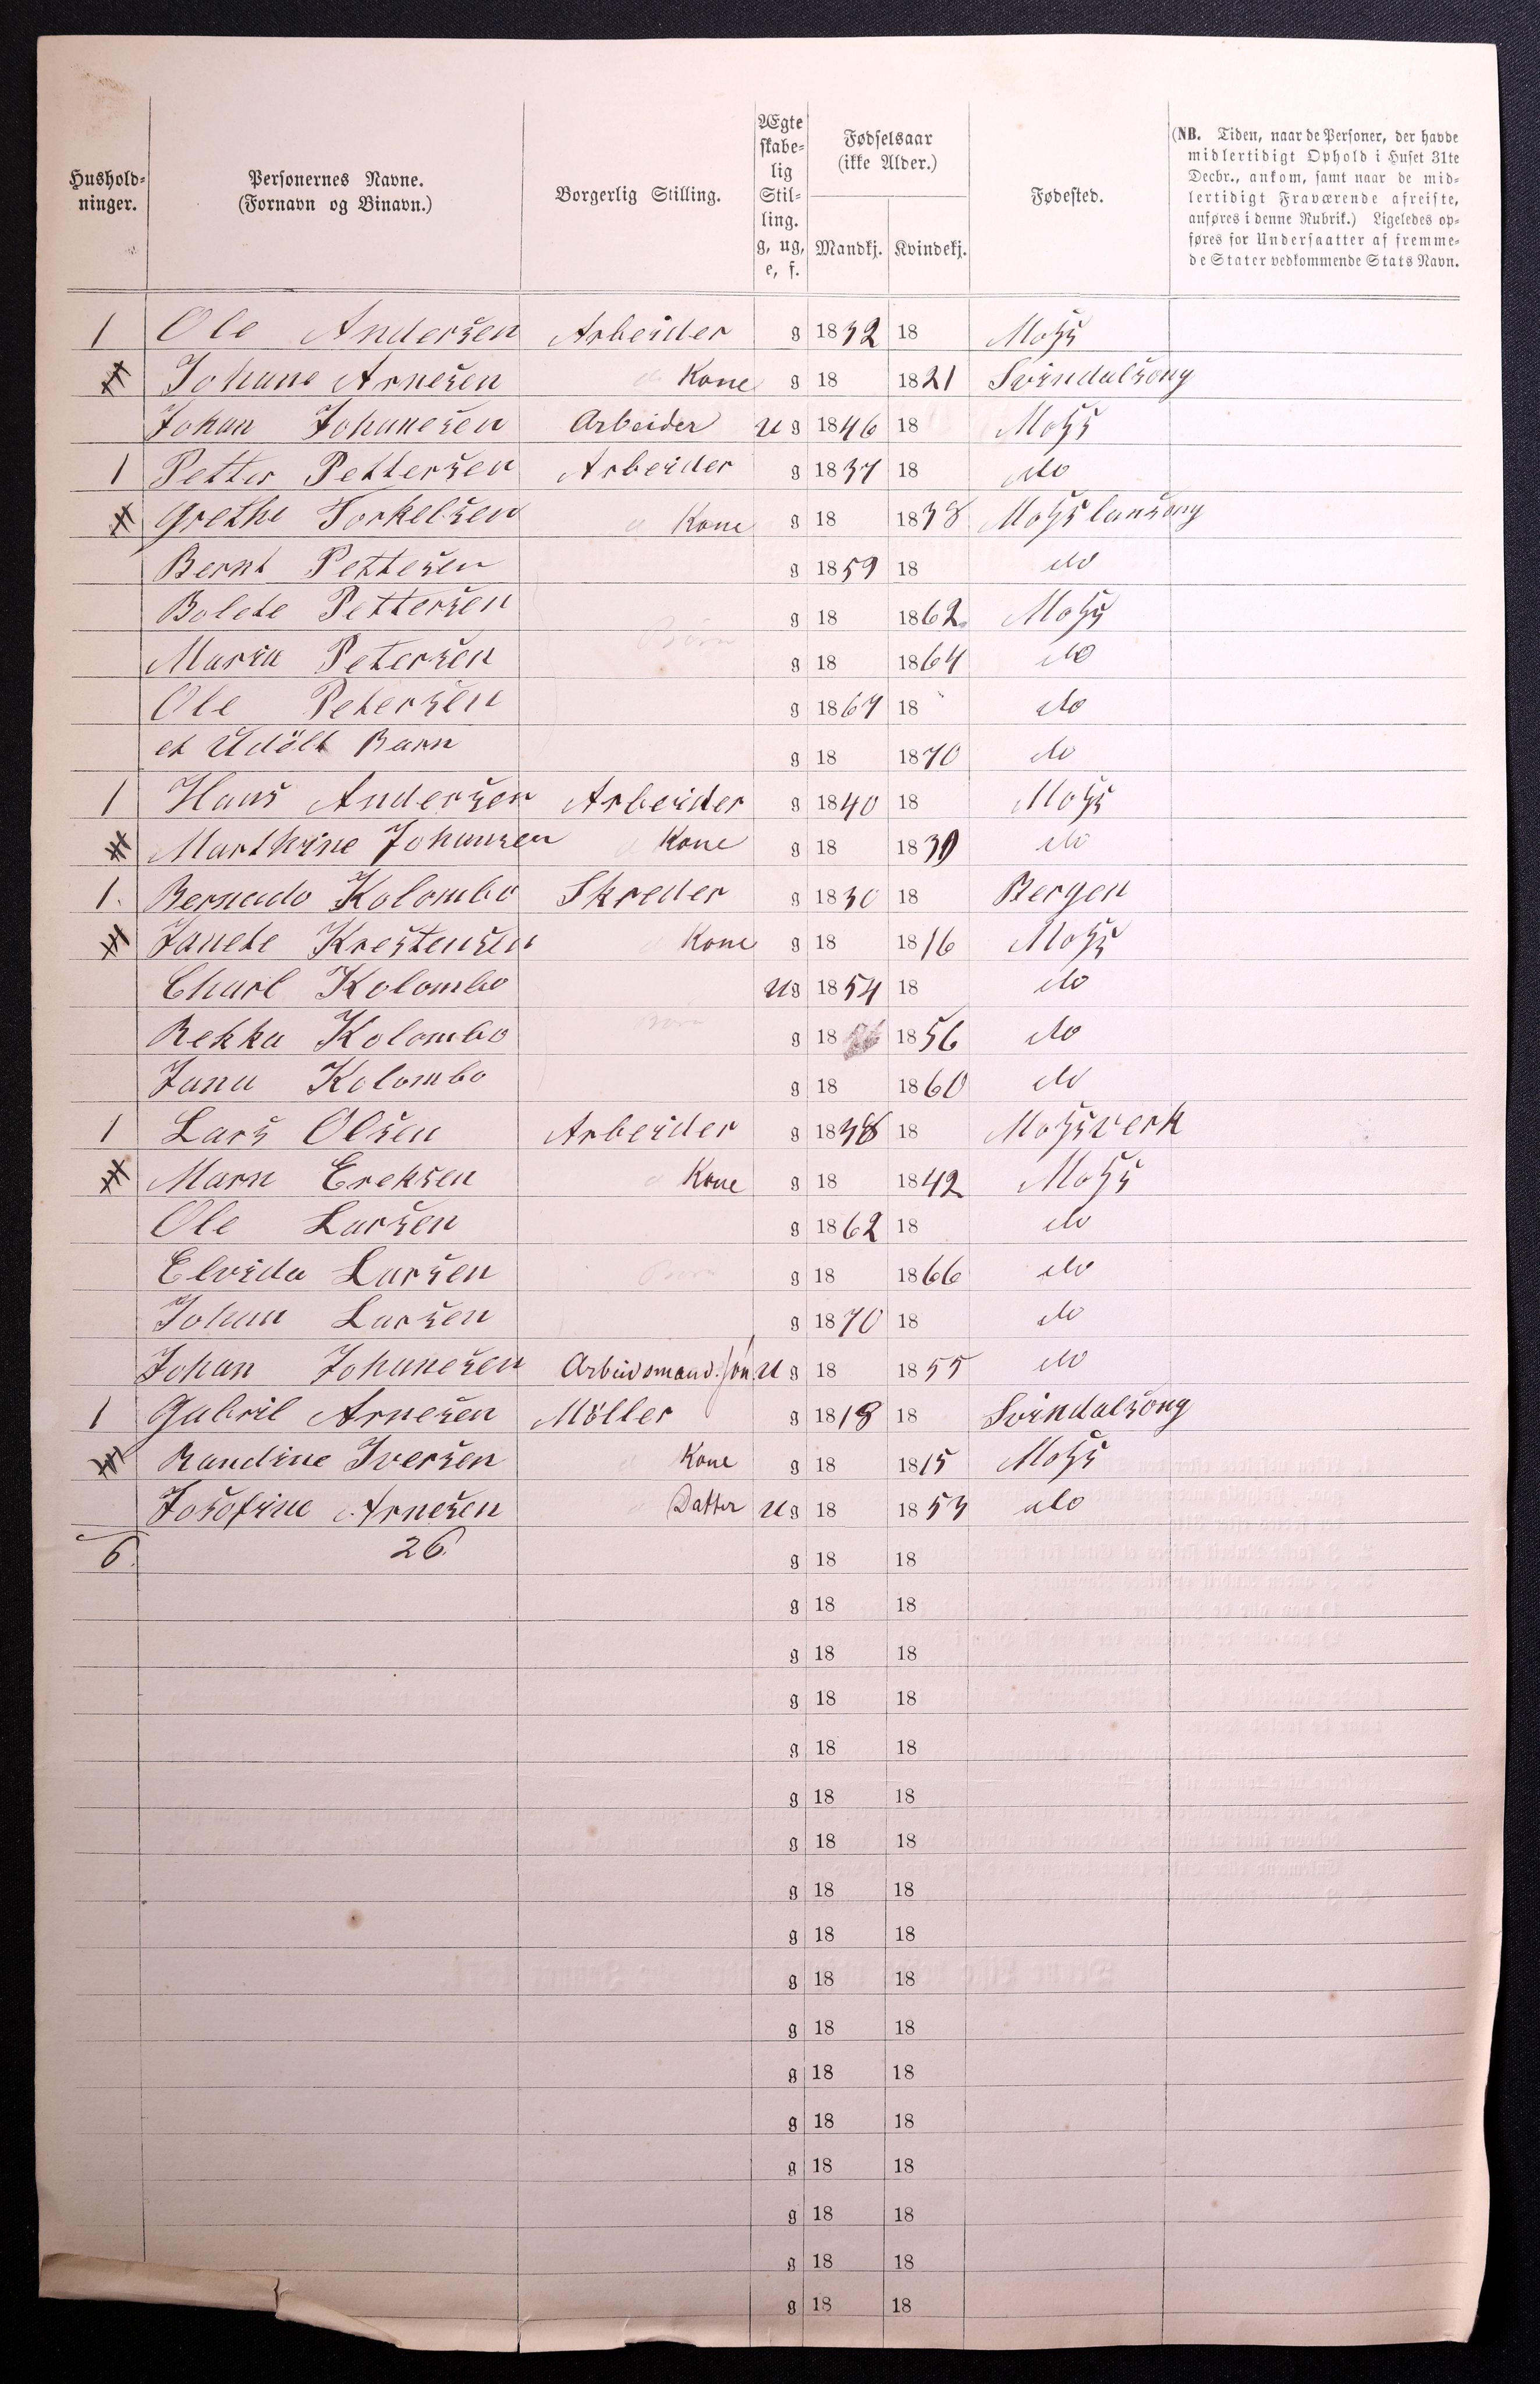 Hushold-
ninger.
Personernes Navne.
(Fornavn og Binavn.)
Borgerlig Stilling.
Ægte
skabe-
lig
Stil-
ling.
g, ug,
e, f.
Fødselsaar
(ikke Alder.)
Mandkj. Kvindekj.
Fødested.
(NB. Tiden, naar de Personer, der havde
midlertidigt Ophold i Huset 31te
Decbr., ankom, samt naar de mid-
lertidigt Fraværende afreiste,
anføres i denne Rubrik.) Ligeledes op-
føres for Undersaatter af fremme-
de Stater vedkommende Stats Navn.
1 Ole Andersen Arbeider g 1832 18 Moss
Johane Arnesen Kone g 18 1821 Svindalsong
Johan Johanesen Arbeider ug 1846 18 Moss
1 Petter Pettersen Arbeider g 1837 18 do
Grethe Torkelsen Kone g 18 1838 Mosslansong
Bernt Pettesen g 1859 18 do
Bolete Pettersen g 18 1862 Moss
Børn
Maren Petersen g 18 1864 do
Ole Petersen g 1867 18 do
et Udölt Barn g 18 1870 do
1 Hans Andersen Arbeider g 1840 18 Moss
Marthine Johansen Kone g 18 1839 do
1. Bernado Kolombo Skreder g 1830 18 Bergen
Janete Krestensen Kone g 18 1816 Moss
Charl Kolombo ug 1854 18 do
Børn
Rekka Kolombo g 18 1856 do
Jana Kolombo g 18 1860 do
1 Lars Olsen Arbeider g 1838 18 Mossverk
Marn Ereksen Kone g 18 1842 Moss
Ole Larsen g 1862 18 do
Elvida Larsen Børn g 18 1866 do
Johan Larsen g 1870 18 do
Johan Johanesen Arbeidsmand. søn ug 18 1855 do
1 Gabril Arnesen Möller g 1818 18 Svindalsong
Randine Iversen Kone g 18 1815 Moss
Josofine Arnesen Datter ug 18 1853 do
6. 26. g 18 18
g 18 18
g 18 18
g 18 18
g 18 18
g 18 18
g 18 18
g 18 18
g 18 18
g 18 18
g 18 18
g 18 18
g 18 18
g 18 18
g 18 18
g 18 18
g 18 18